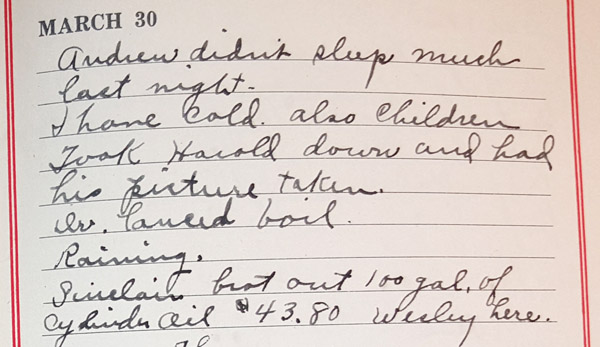 MARCH 30
Andrew didn't sleep much
last night.
I have cold. also children
Took Harold down and had
his picture taken.
Dr. lanced boil.
Raining.
Sinclair brot out 100 gal. of
Cylinder Oil $43.80 Wesley here.